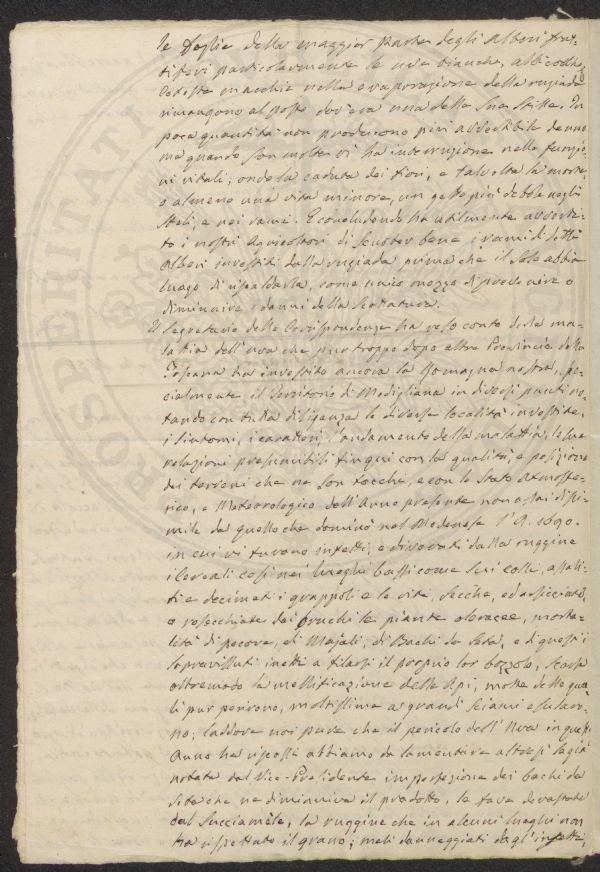 le foglie della maggior parte degli alberi frut-
tiferi particolarmente le uve bianche, albicocche,
Codeste macchie nella evaporazione della rugiada
rimangono al posto dov'era una delle sue stille. In
poca quantità non producono più avvertibile danno
ma quando son molte vi ha interruzione nelle funzio-
ni vitali, onde la caduta dei fiori, e talvolta la morte,
o almeno una vita minore, un getto più debole negli
steli, e nei rami. E concludendo ha utilmente avverti-
to i nostri Agricoltori di scuoter bene i rami di detti
Alberi investiti dalla rugiada prima che il Sole abbia
luogo di riscaldarla, come unico mezzo di prevenire o
diminuire i danni della
Il Segretario delle Corrispondenze ha reso conto della ma-
lattia dell'uva che pur troppo dopo altre Provincie della
Toscana ha investito ancora la Romagna nostra, spe-
cialmente il Territorio di Modigliana in diversi punti no-
tando con tutta diligenza le diverse località investite,
i sintomi, i caratteri, l'andamento della malattia, le sue
relazioni presumibili fin qui con la qualità, e posizione
dei terreni che ne son tocchi, e con lo stato Atmosfe-
rico, e Meteorologico dell'Anno presente non assai dissi-
mile da quello che dominò nel Modenese l'A. 1690.
in cui vi furono infetti, e divorati dalla ruggine
i cereali così nei luoghi bassi come sui colli, assali-
ti e decimati i grappoli e le viti, secche, ed
o rosecchiate dai bruchi le piante oleracee, morta-
lità di pecore, di Majali, di Bachi da Seta, e di questi i
sopravissuti inetti a filarsi il proprio lor bozzolo, scarsa
oltremodo la mellificazione delle Api, molte delle qua-
li pur perirono, moltissime a grandi sciami
no; laddove noi pure che il pericolo dell'Uva in questo
Anno ha riscosse abbiamo da lamentare altresì la già
notata dal Vice-Presidente imperfezione dei bachi da
seta che ne diminuiva il prodotto, le fave devastate
dal Succiamele, la ruggine che in alcuni luoghi non
ha rispettato il grano, meli danneggiati dagl'insetti,